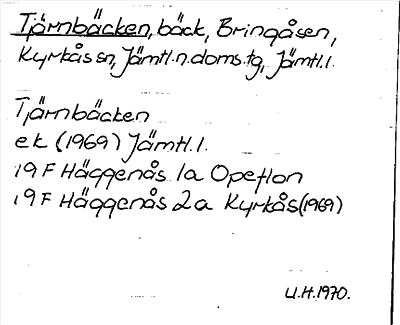 Tjärnbäcken, bäck, Bringåsen,
Kyrkås sn, Jämtl.n.doms.tg, Jämtl.l.
Tjärnbäcken
ek (1969) Jämtl.l.
19F Häggenås 1a Opeflon
19F Häggenås 2a Kyrkås (1969)
U.H. 1970.